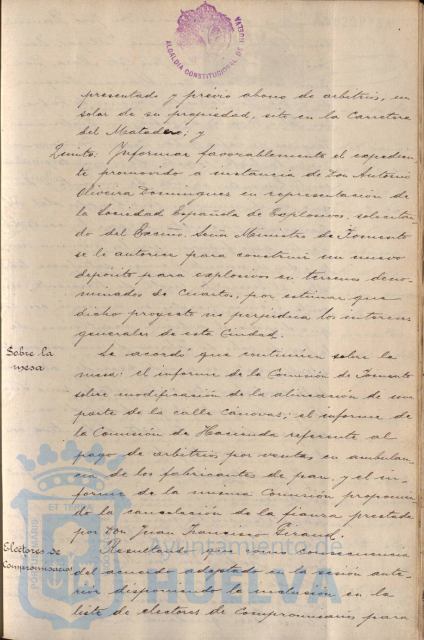 ALCALDIA CONSTITUCIONAL DE HUELVA
presentado y prévio abono de arbitrios, en
solar de su propiedad, sito en la Carretera
del Matadero; y
Quinto. Informar favorablemente el expedien-
te promovido a instancia de Don Antonio
Oliveira Dominguez en representación de
la Sociedad Española de Explosivos, solicitan-
do del Excmo. Señor Ministro de Fomento
se le autorice para construir un nuevo
depósito para explosivos en terrenos deno-
minados de Cuartos, por estimar que
dicho proyecto no perjudica los intereses
generales de esta Ciudad.
Sobre la
mesa
Se acordó que continúen sobre la
mesa: el informe de la Comisión de Fomento
sobre modificación de la alineación de una
parte de la calle Cánovas; el informe de
la Comisión de Hacienda referente al
pago de arbitrios por ventas en ambulan-
cia de los fabricantes de pan, y el in-
forme de la misma Comisión proponien-
do la cancelación de la fianza prestada
por Don Juan Francisco
Electores de
Compromisarios
Resultando que como consecuencia
del acuerdo adoptado en la sesión ante-
rior disponiendo la inclusión en la
lista de electores de Compromisarios, para
Ayuntamiento de
HUELVA